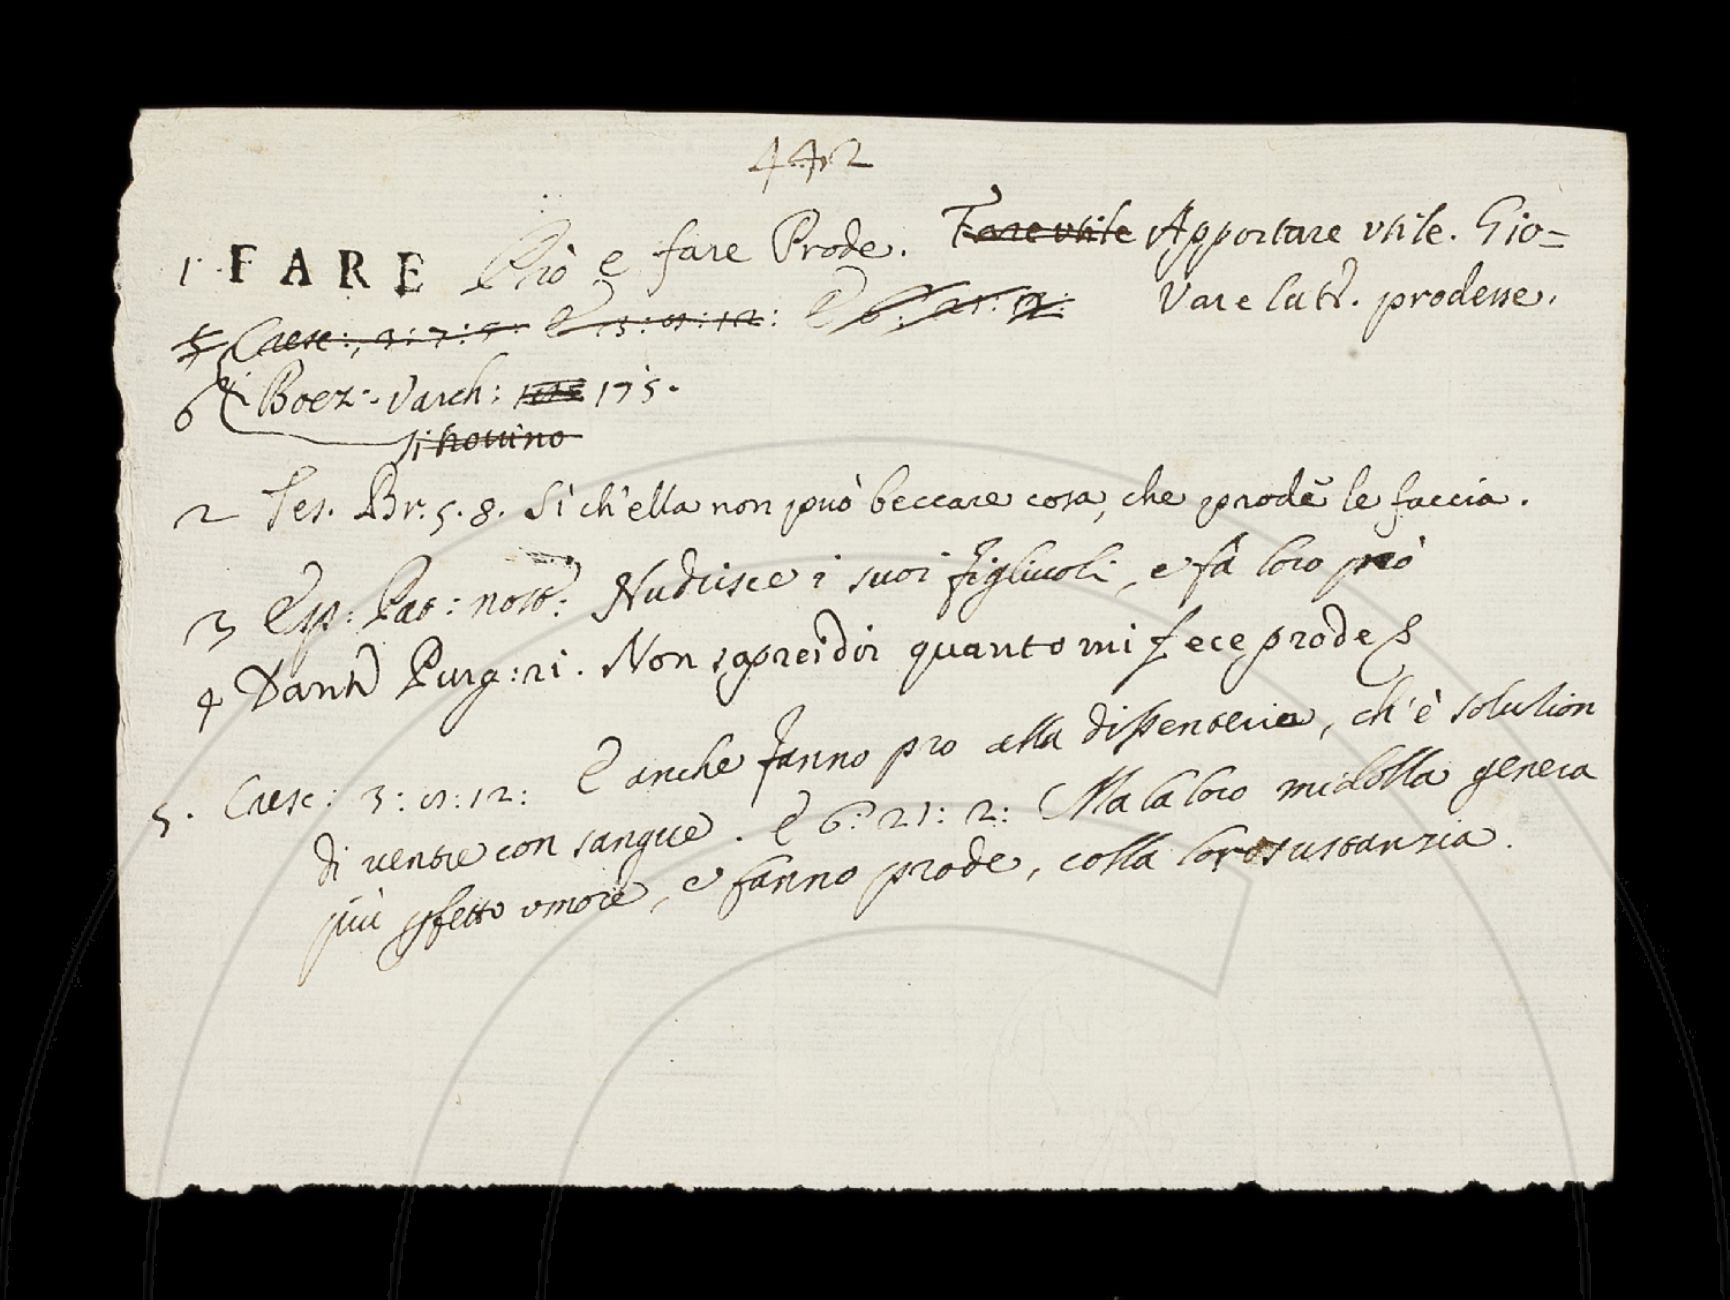 442
1 FARE Prò e fare Prode. Fare utile Apportare vtile. Gio=
vare lat. prodesse.
5 Cresc:, 3:7:5: E 3:8:12: E 6: 21: 2:
6 Boez. Varch: 175.
2 Tes. Br. 5. 8. Sì ch'ella non può beccare cosa, che prode le faccia.
3 Esp: Pat: nost: Nudrisce i suoi figliuoli, e fà loro prò
4 Dant. Purg: 21. Non saprei dir quanto mi fece prode
5. Cresc: 3: 8: 12: E anche fanno pro alla dissenteria, ch'è solution
di ventre con sangue. E 6: 21: 2: Ma la loro midolla genera
più pfetto vmore, e fanno prode, colla loro sustanzia.